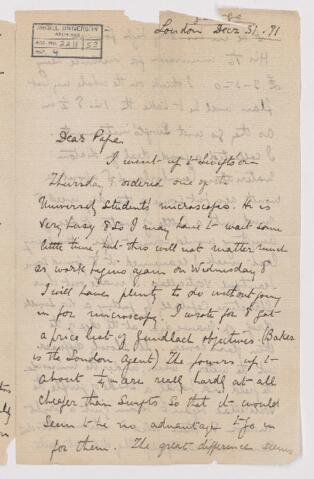 McGILL UNIVERSITY
ARCHIVES
ACC. NO. 2211 53
REF. 4
London Decr 31. 91
Dear Papa
I went up to Swifts on
Thursday & ordered one of the
University Students' microscopes. He is
very busy & so I may have to wait some
little time, but this will not matter much
as work begins again on Wednesday &
I will have plenty to do without going
in for microscopy. I wrote for & got
a price list of Gundlach objectives (Baker
is the London Agent) The powers up to
about are really hardly at all
cheaper than Swifts so that it would
seem to be no advantage to go in
for them. The great difference seems